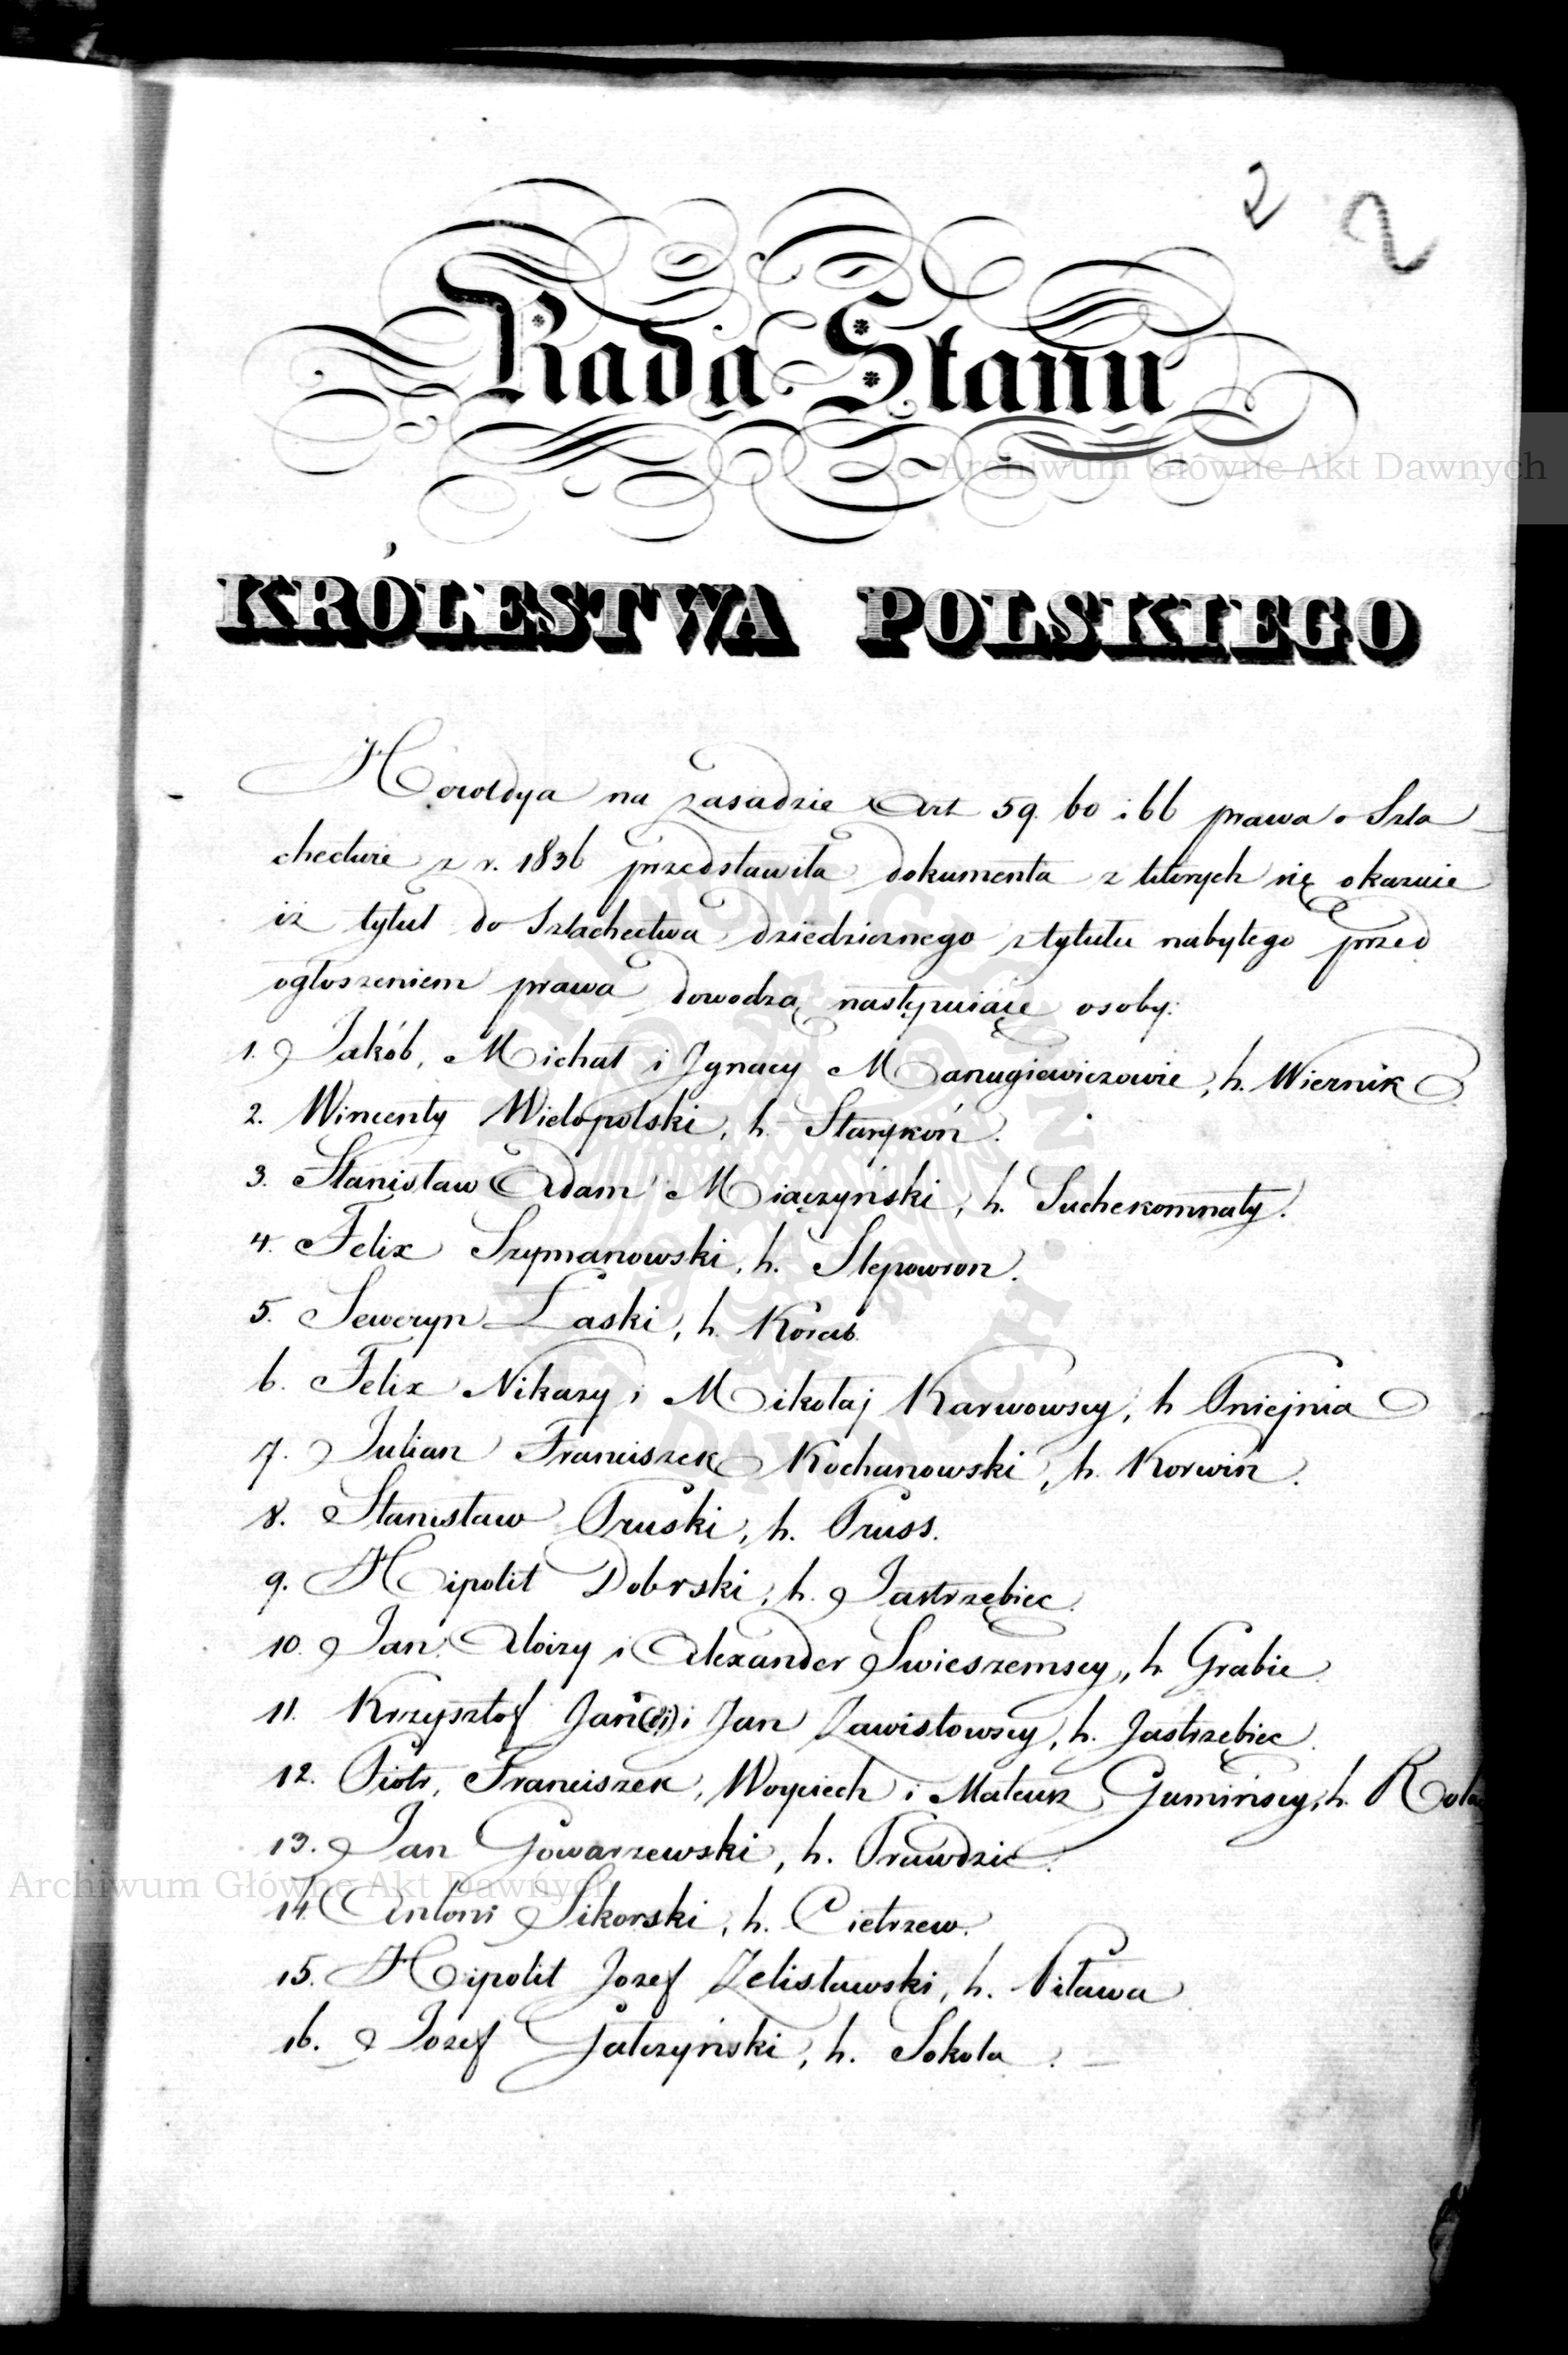 2 2
Rada Stanu
© Archiwum Główne Akt Dawnych
KRÓLESTWA POLSKIEGO
Heroldya na zasadzie Art 59. 60 i 66 prawa o Szla
chectwie z r. 1836 przedstawiła dokumenta z których się okazuie
iż tytuł do Szlachectwa dziedzicznego z tytułu nabytego przed
ogłoszeniem prawa dowodzą następuiące osoby:
1. Jakób, Michał i Ignacy Manugiewiczowie, h. Wiernik
2. Wincenty Wielopolski, h. Starykoń.
3. Stanisław Adam Miączyński, h. Suchekomnaty.
4. Felix Szymanowski, h. Slepowron.
5. Seweryn Łaski, h. Korab.
6. Felix Nikazy i Mikołaj Karwowscy, h Pniejnia
7. Julian Franciszek Kochanowski, h. Korwin.
8. Stanisław Pruski, h. Pruss.
9. Hipolit Dobrski, h. Jastrzębiec.
10. Jan, Aloizy i Alexander Swieszewscy, h. Grabie.
11. Krzysztof Jan i Jan Zawistowscy, h. Jastrzębiec.
12. Piotr, Franciszek, Woyciech i Mateusz Gumińscy, h.
13. Jan Gowarzewski, h. Prawdzic.
Archiwum Główne Akt Dawnych
14. Antoni Sikorski, h. Cietrzew.
15. Hipolit Jozef Zelisławski, h. Piława
16. Jozef Gałczyński, h. Sokola.